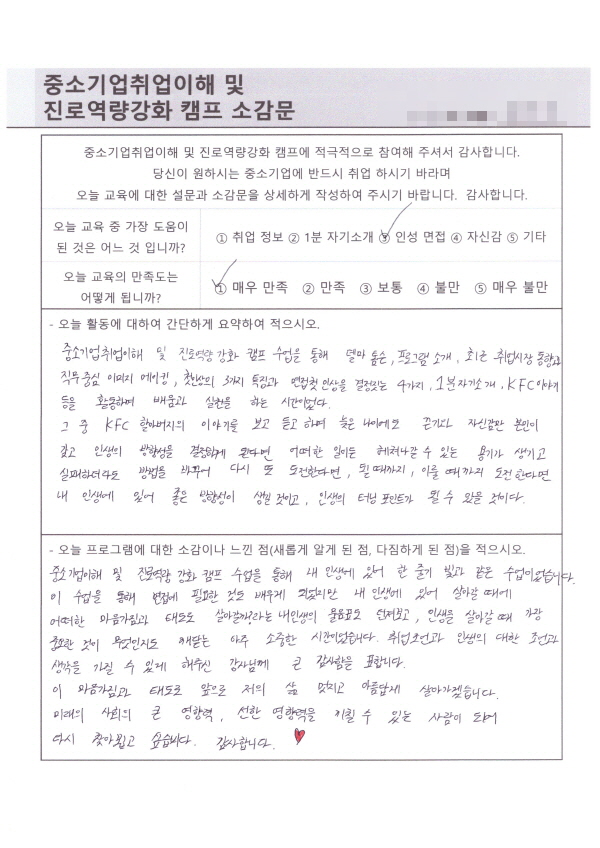 중소기업취업이해 및
진로역량강화 캠프 소감문
중소기업취업이해 및 진로역량강화 캠프에 적극적으로 참여해 주셔서 감사합니다.
당신이 원하시는 중소기업에 반드시 취업 하시기 바라며
오늘 교육에 대한 설문과 소감문을 상세하게 작성하여 주시기 바랍니다. 감사합니다.
오늘 교육 중 가장 도움이
된 것은 어느 것 입니까?
① 취업 정보 ② 1분 자기소개 ③ 인성 면접 ④ 자신감 ⑤ 기타
오늘 교육의 만족도는
어떻게 됩니까?
① 매우 만족 ② 만족 ③ 보통 ④ 불만 ⑤ 매우 불만
- 오늘 활동에 대하여 간단하게 요약하여 적으시오.
중소기업취업이해 및 진로역량강화 캠프 수업을 통해 톰슨, 프로그램 소개, 최근 취업시장 동향과
직무중심 이미지 메이킹, 첫인상의 3가지 특징과 면접 첫인상을 결정짓는 4가지, 1분자기소개, KFC이야기
등을 활동하며 배움과 실천을 하는 시간이었다.
그 중 KFC 할아버지의 이야기를 보고 듣고하며 늦은 나이에도 끈기와 자신감만 본인이
갖고 인생의 방향성을 결정하게 된다면 어떠한 일이든 헤쳐나갈 수 있는 용기가 생기고
실패하더라도 방법을 바꾸어 다시 또 도전한다면, 될때까지, 이룰 때까지 도전한다면
내 인생에 있어 좋은 방향성이 생길 것이고, 인생의 터닝 포인트가 될 수 있을 것이다.
- 오늘 프로그램에 대한 소감이나 느낀 점(새롭게 알게 된 점, 다짐하게 된 점)을 적으시오.
중소기업이해 및 진로역량 강화 캠프 수업을 통해 내 인생에 있어 한 줄기 빛과 같은 수업이었습니다.
이 수업을 통해 면접에 필요한 것도 배우게 되었지만 내 인생에 있어 살아갈 때에
어떠한 마음가짐과 태도로 살아갈까?라는 내인생의 물음표도 던져보고, 인생을 살아갈 때 가장
중요한 것이 무엇인지도 깨닫는 아주 소중한 시간이었습니다. 취업조언과 인생의 대한 조언과
생각을 가질 수 있게 해주신 강사님께 큰 감사함을 표합니다.
이 마음가짐과 태도로 앞으로 저의 삶 멋지고 아름답게 살아가겠습니다.
미래의 사회의 큰 영향력, 선한 영향력을 끼칠 수 있는 사람이 되어
다시 찾아뵙고 싶습니다. 감사합니다.